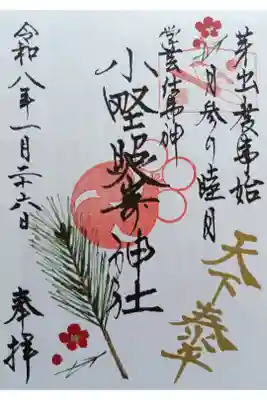 芽出度事始
月参り睦月
学芸仕事神
小野照崎神社
天下
令和八年一月二十六日
奉拝